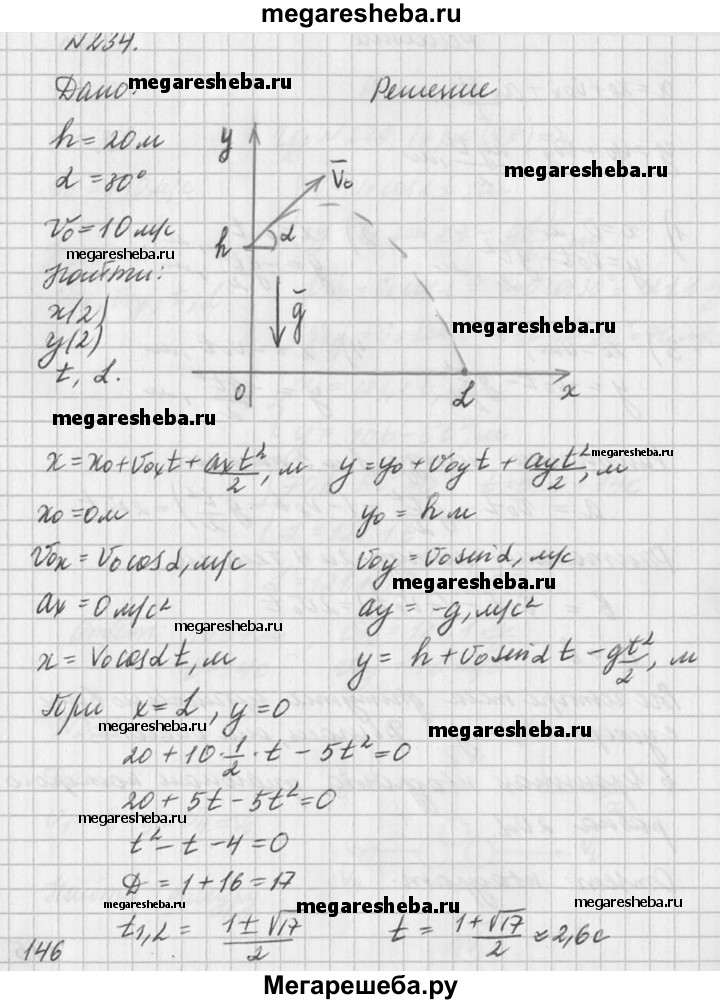 megaresheba.ru
N234.
Дано: megaresheba.ru Решение
h = 20 м
α = 30°
V₀ = 10 м/с
megaresheba.ru
Найти:
x(2)
y(2)
t, L.
y
V̄₀
megaresheba.ru
h
α
ḡ
megaresheba.ru
0 L x
megaresheba.ru
x = x₀ + v₀ₓt + aₓt²/2, м y = y₀ + v₀yt + ayt²/2, м
megaresheba.ru
x₀ = 0 м y₀ = h м
v₀ₓ = v₀cosα, м/с v₀y = v₀sinα, м/с
megaresheba.ru
aₓ = 0 м/с² ay = -g, м/с²
megaresheba.ru
x = v₀cosα t, м y = h + v₀sinα t - gt²/2, м
При x = L, y = 0
megaresheba.ru
megaresheba.ru
20 + 10 · 1/2 · t - 5t² = 0
20 + 5t - 5t² = 0
megaresheba.ru
t² - t - 4 = 0
D = 1 + 16 = 17
megaresheba.ru
megaresheba.ru
t₁,₂ = (1 ± √17)/2 t = (1 + √17)/2 ≈ 2,6 с
146
Мегарешеба.ру